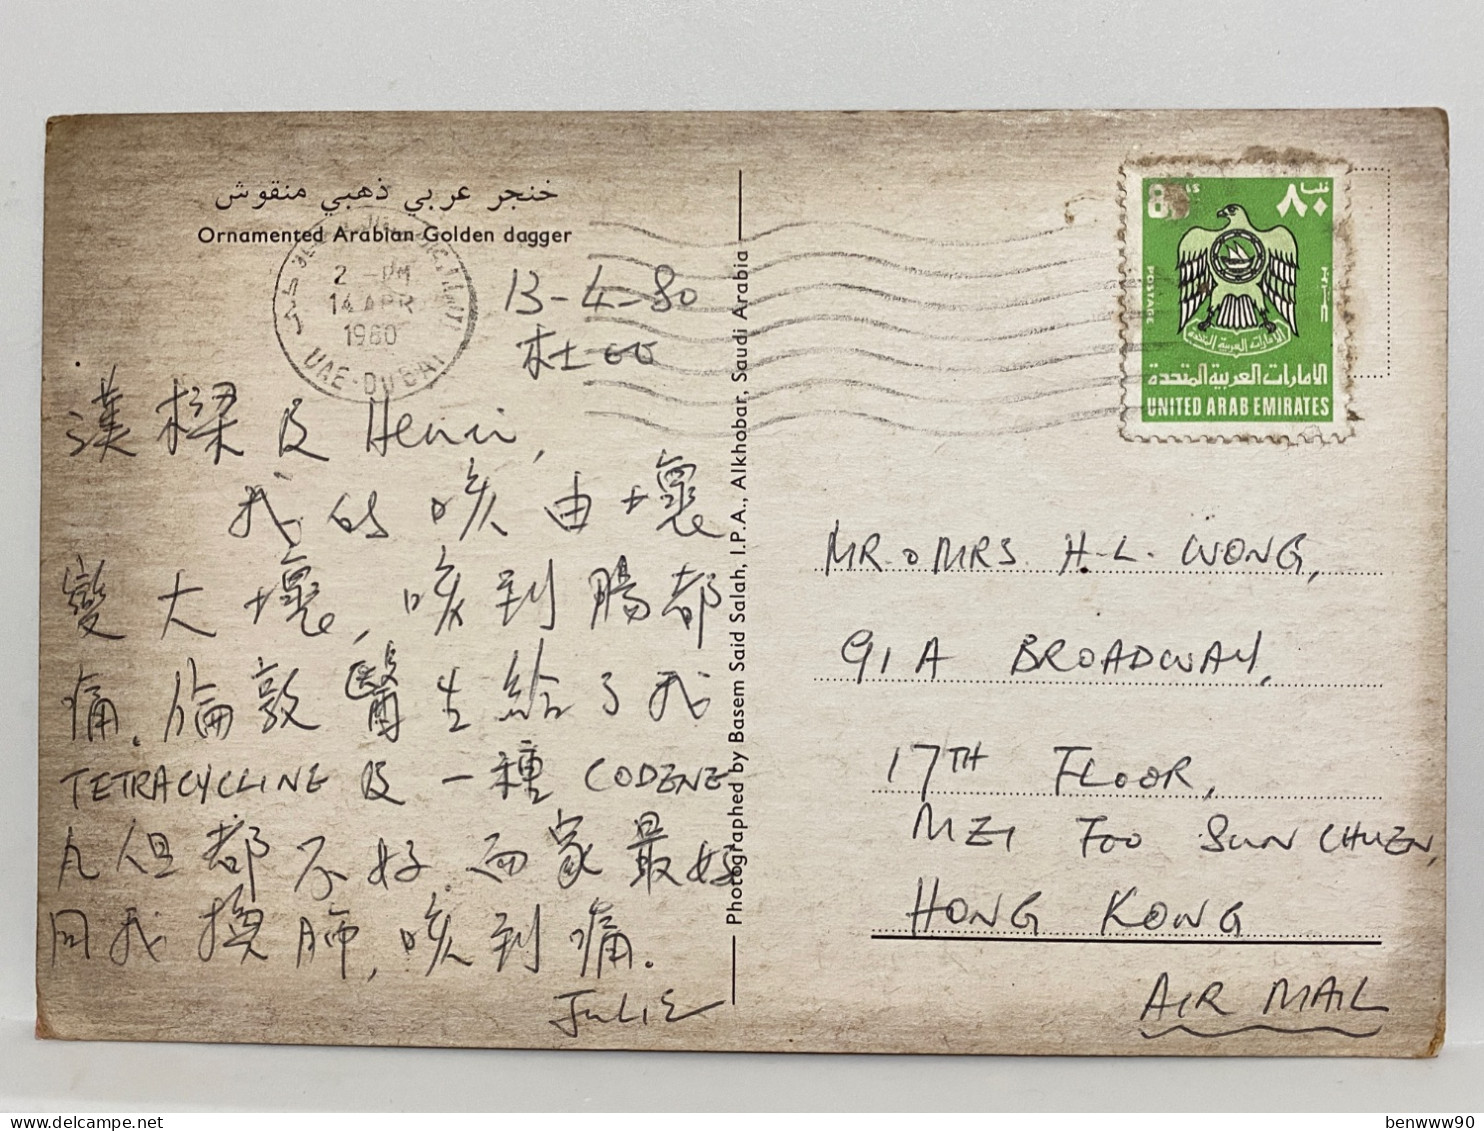 خنجر عربي ذهبي منقوش
Ornamented Arabian Golden dagger
2 - PM
14 APR
1980
UAE-DUBAI
13-4-80
杜
漢樑及Henri,
我的咳由壞
變大壞,咳到腸都
痛.倫敦醫生給了我
TETRACYCLINE及一種CODENE
丸但都不好.而家最好
同我換肺,咳到痛.
JULIE
Photographed by Basem Said Salah, I.P.A., Alkhobar, Saudi Arabia
فلسا ٨٠
الامارات العربية المتحدة
POSTAGE
الامارات العربية المتحدة
UNITED ARAB EMIRATES
MR. & MRS. H-L. WONG,
91A BROADWAY,
17TH FLOOR,
MEI FOO SUN CHUEN,
HONG KONG
AIR MAIL
benwww90